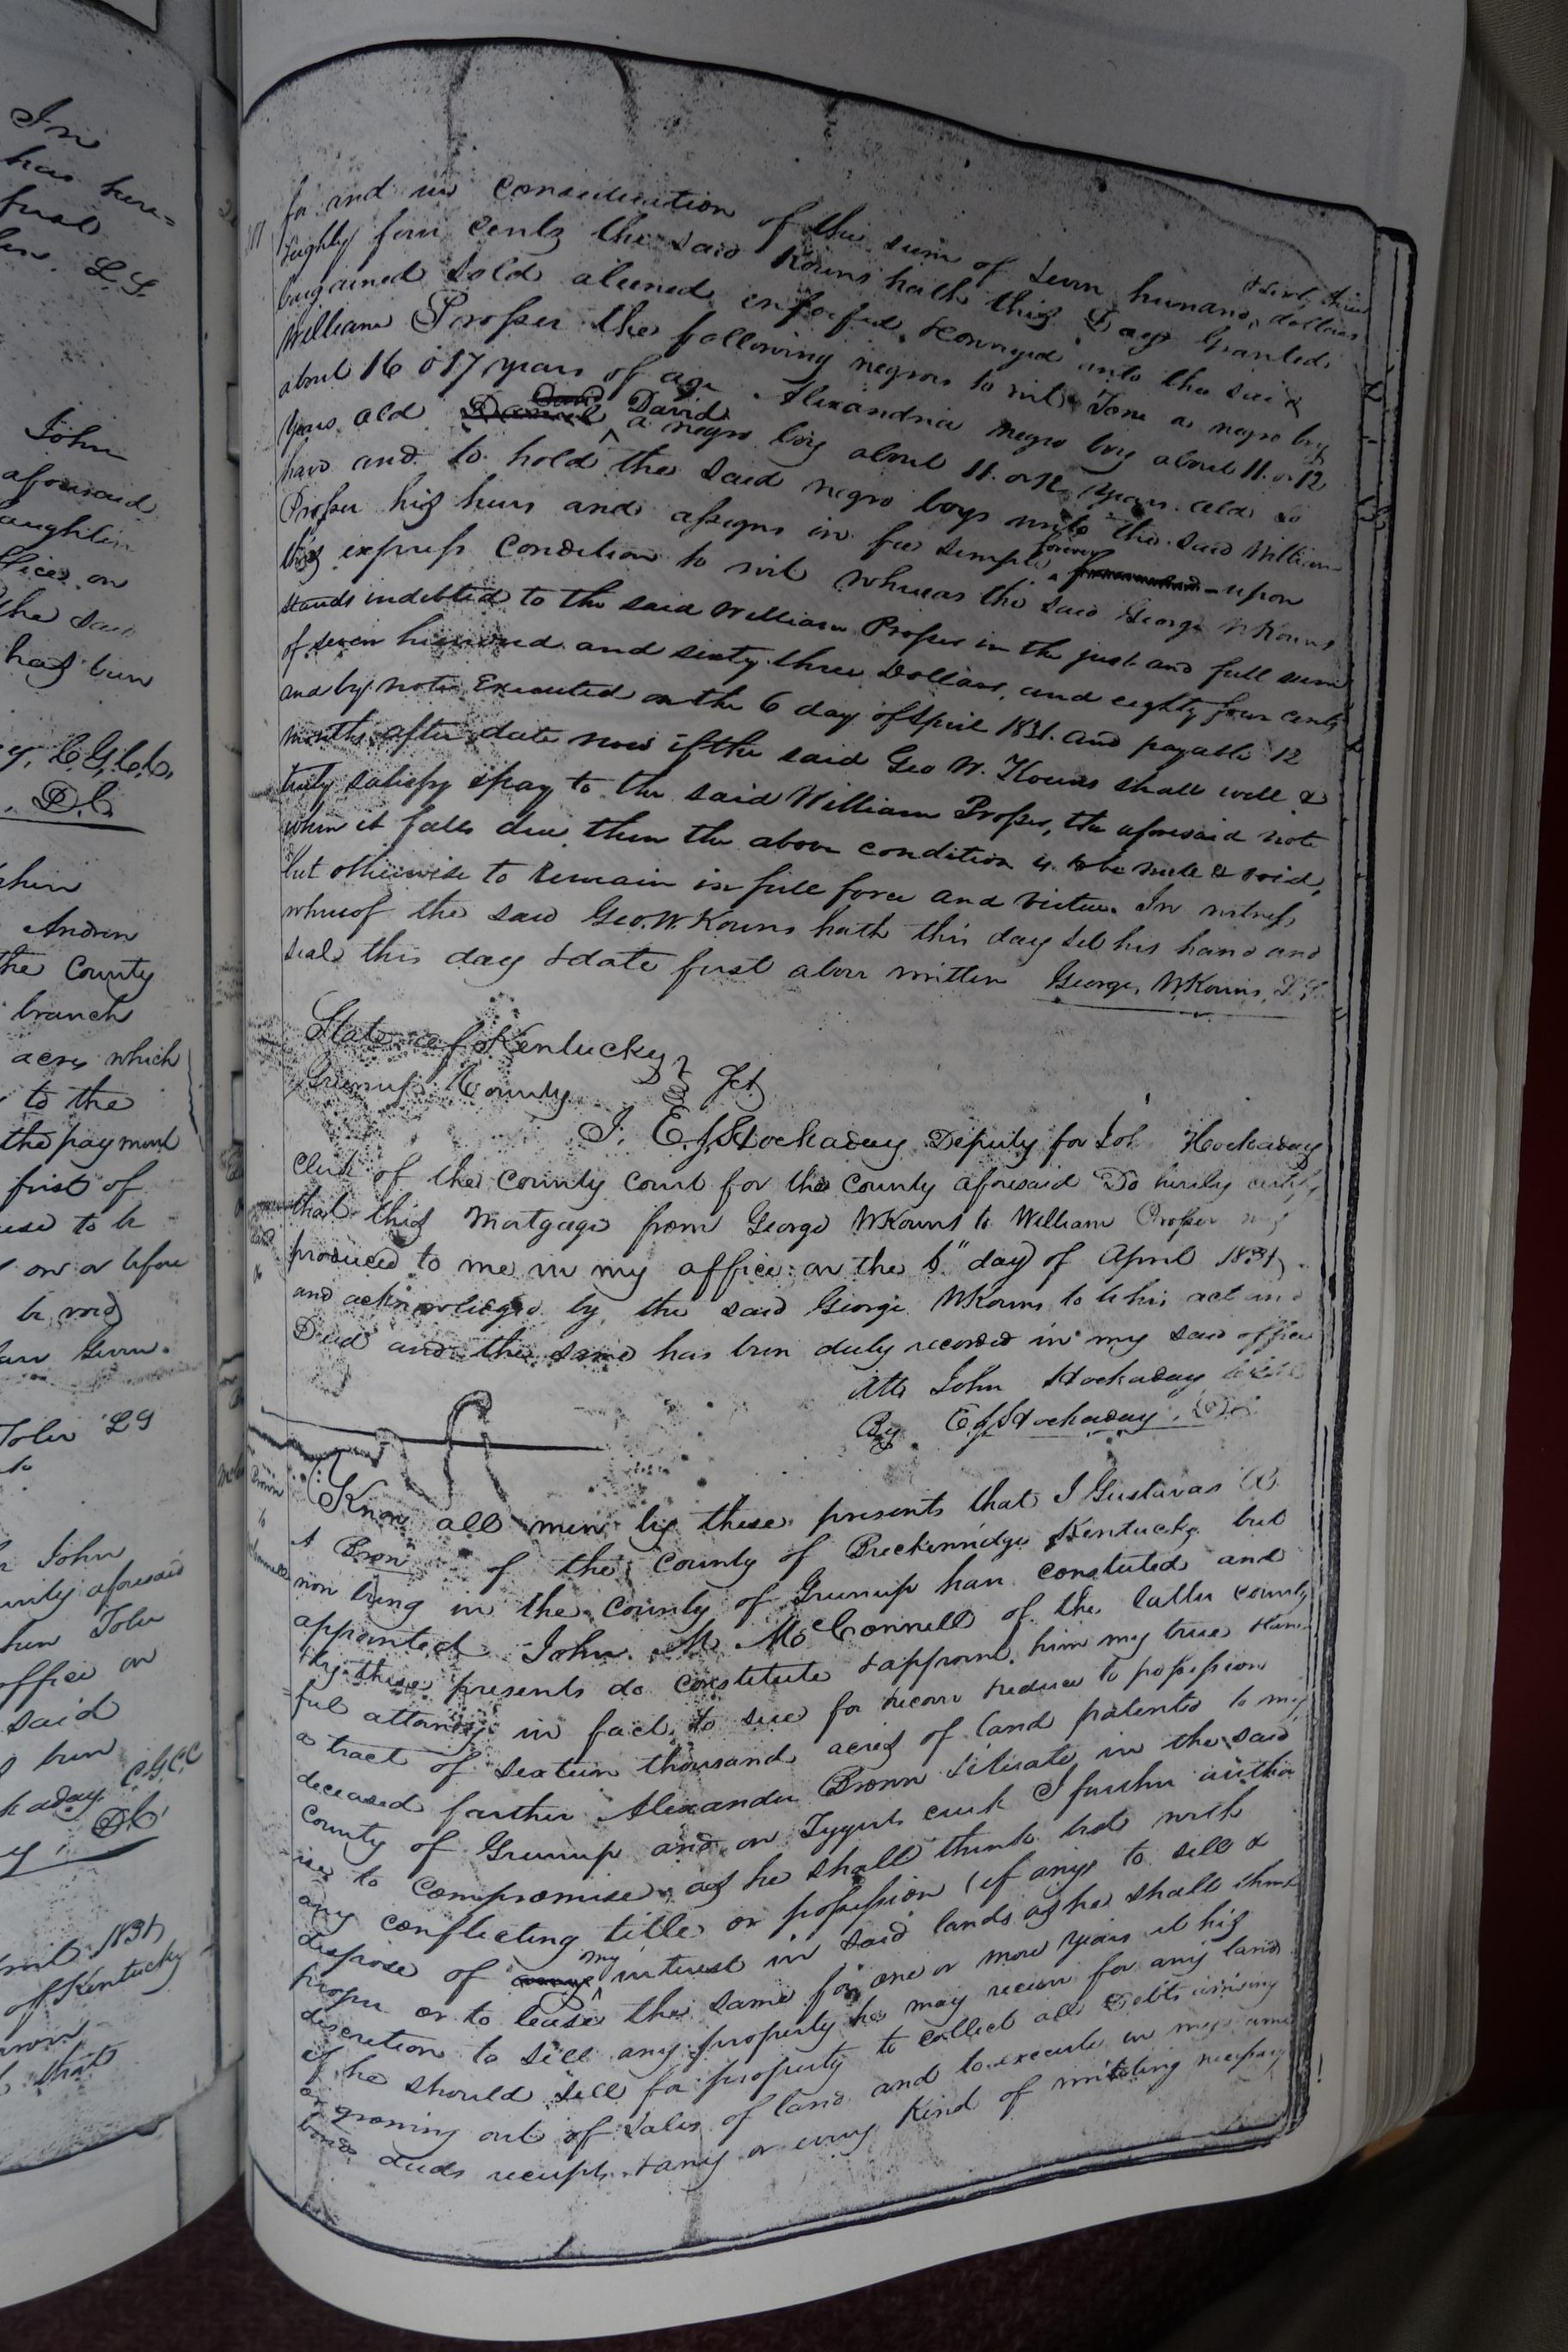 In
has here=
John
aforesaid
office on
the said
has been
D.C.
Andrew
the County
branch
acres which
to the
the payment
first of
on or before
be void
John
County aforesaid
office on
said
been
C.G.C.C
DC
1831
of Kentucky
that
for and in consideration of the sum of seven hundred & sixty three dollars
Eighty four cents the said Kouns hath this Day Granted
bargained sold aliened enfeofed & conveyed unto the said
William Proser the following negroes to wit Tone a negro boy
about 16 o 17 years of age Alexandria negro boy about 11. or 12
years old David a negro boy about 11. or 12 years old to
have and to hold the said negro boys unto the said William
Proser his heirs and assigns in fee simple forever upon
this express Condition to wit Whereas the said George W Kouns
stands indebted to the said William Proser in the just and full sum
of seven hundred and sixty three Dollars, and eighty four cents
and by note Executed on the 6 day of April 1831. and payable 12
months after date now if the said Geo W. Kouns shall well &
truly satisfy & pay to the said William Proser, the aforesaid note
when it falls due then the above condition is to be null & void,
but otherwise to remain in full force and virtue. In witness
whereof the said Geo. W. Kouns hath this day set his hand and
seal this day & date first above written George, W Kouns,
State of Kentucky
Greenup County Sct
I. E. J. Hockaday Deputy for Joh Hockaday
Clerk of the County Court for the County aforesaid Do hereby certify
that this Mortgage from George W Kouns to William Proser was
produced to me in my office on the 6" day of April 1831,
and acknowledged by the said George W Kouns to be his act and
Deed and the same has been duly recorded in my said office
Atte John Hockaday
By E J Hockaday, DC
Brown
to
McConnell
Know all men by these presents that I Gustavas
A Bron of the County of Breckenridge Kentucky but
now being in the County of Greenup have constuted and
appointed John M. McConnell of the latter county
& by these presents do constitute & appoint him my true & law
ful attorney in fact, to sue for recover & reduce to possession
a tract of sixteen thousand acres of land patented to my
deceased farther Alexander Brown situate in the said
County of Greenup and on Tygerts creek I further autho
ise to compromise as he shall think best with
any conflicting title or possession (if any) to sell &
dispose of my interest in said lands as he shall think
proper or to lease the same for one or more years at his
discretion to sell any property he may receive for any land
if he should sell for property to collect all debts arising
or growing out of sales of land and to execute in my name
bonds deeds receipts & any or every kind of writeing necessary